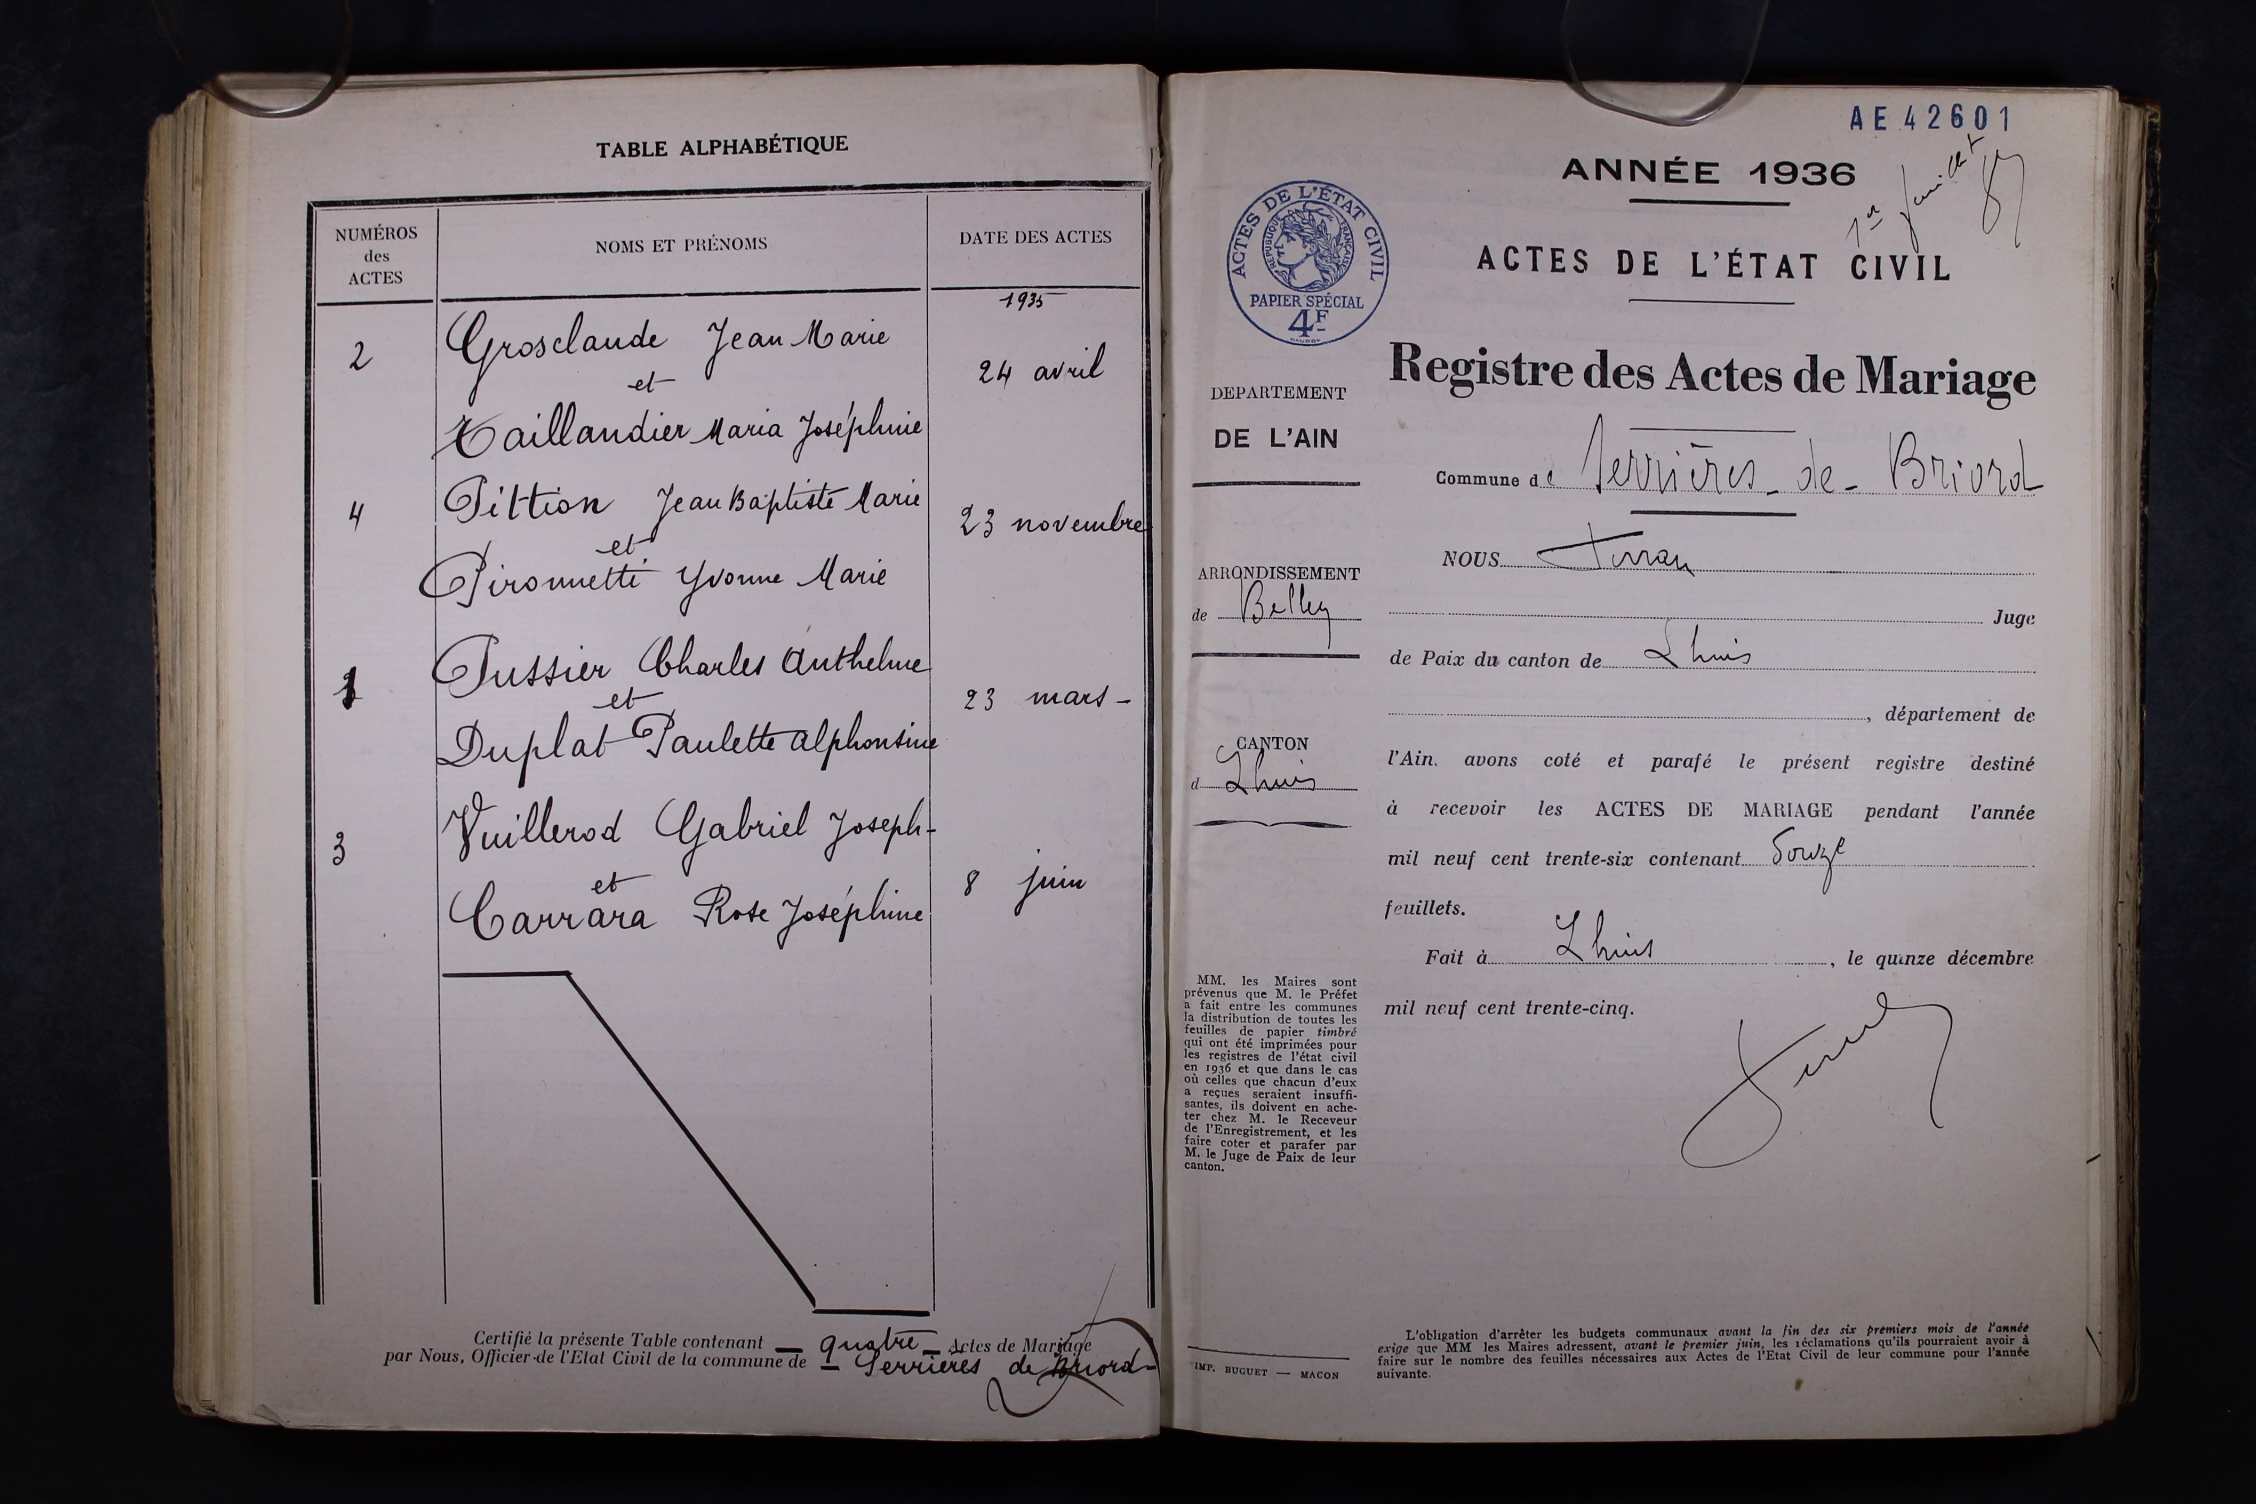 TABLE ALPHABÉTIQUE
NUMÉROS
des
ACTES
NOMS ET PRÉNOMS
DATE DES ACTES
1935
2
Grosclaude Jean Marie
et
Taillandier Maria Joséphine
24 avril
4
Pittion Jean Baptiste Marie
et
Pironnetti Yvonne Marie
23 novembre
1
Pussier Charles Anthelme
et
Duplat Paulette Alphonsine
23 mars -
3
Vuillerod Gabriel Joseph-
et
Carrara Rose Joséphine
8 juin
Certifié la présente Table contenant quatre Actes de Mariage
par Nous, Officier de l'Etat Civil de la commune de Serrières de Briord
AE 42601
ANNÉE 1936
1er feuillet
ACTES DE L'ÉTAT CIVIL
ACTES DE L'ÉTAT CIVIL
RÉPUBLIQUE FRANÇAISE
PAPIER SPÉCIAL
4F
Registre des Actes de Mariage
DEPARTEMENT
DE L'AIN
Commune de Serrières-de-Briord
NOUS
ARRONDISSEMENT
de Belley
Juge
de Paix du canton de Lhuis
, département de
CANTON
d Lhuis
l'Ain, avons coté et parafé le présent registre destiné
à recevoir les ACTES DE MARIAGE pendant l'année
mil neuf cent trente-six contenant Douze
feuillets.
Fait à Lhuis, le quinze décembre
mil neuf cent trente-cinq.
MM. les Maires sont
prévenus que M. le Préfet
a fait entre les communes
la distribution de toutes les
feuilles de papier timbré
qui ont été imprimées pour
les registres de l'état civil
en 1936 et que dans le cas
où celles que chacun d'eux
a reçues seraient insuffi-
santes, ils doivent en ache-
ter chez M. le Receveur
de l'Enregistrement, et les
faire coter et parafer par
M. le Juge de Paix de leur
canton.
IMP. BUGUET — MACON
L'obligation d'arrêter les budgets communaux avant la fin des six premiers mois de l'année
exige que MM les Maires adressent, avant le premier juin, les réclamations qu'ils pourraient avoir à
faire sur le nombre des feuilles nécessaires aux Actes de l'Etat Civil de leur commune pour l'année
suivante.